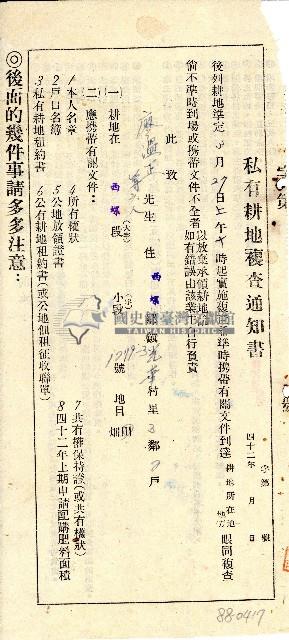 私有耕地複查通知書
四十二年 月 日 字第 號
後列耕地準定 3 月 27 日上午 時起實施複 準時携帶有關文件到達 耕地所在地 眼同複查
倘不準時到場或携帶文件不全者 以放棄承領耕地
如有錯誤由該業主自行負責
此致
先生 住 西螺 鎮 村里 3 鄰 7 戶
(一) 耕地在 西螺 段 小段 號 地目 畑
(二) 應携帶有關文件:
1本人名章
2戶口名簿
3私有耕地租約書
4所有權狀
5公地放領證書
6公有耕地租約書(或公地佃租征收聯單)
7共有權保持證(或共有權狀)
8四十二年上期申請配購肥料面積
◎後面的幾件事請多多注意:
國史館臺灣文獻館
88-0417